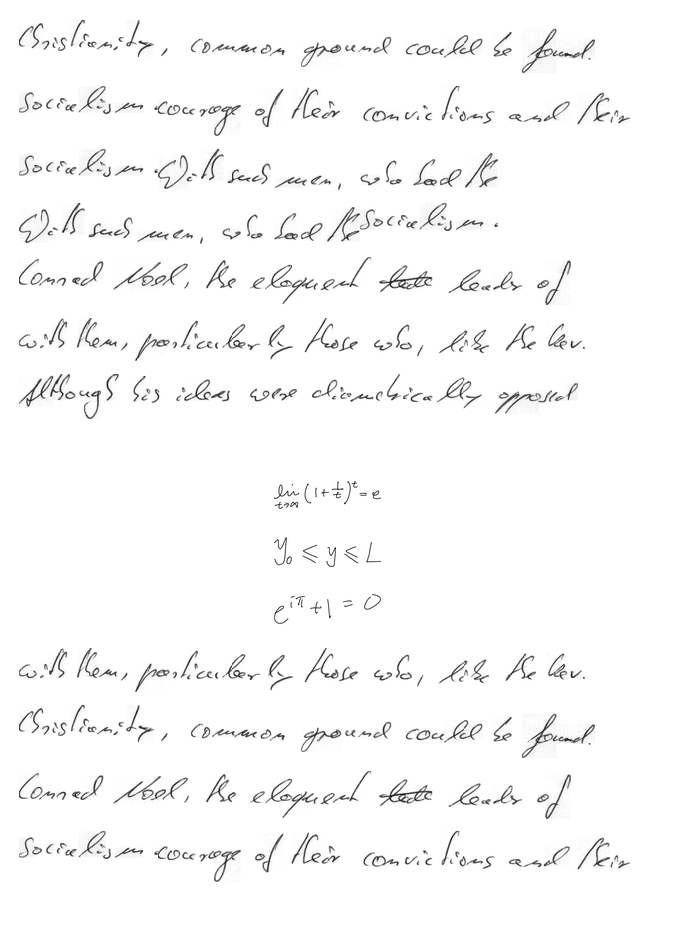 Christianity, common ground could be found.
Socialism courage of their convictions and their
Socialism. With such men, who had the
With such men, who had the Socialism.
Conrad Noel, the eloquent leader of
with them, particularly those who, like the Rev.
Although his ideas were diametrically opposed
lim_{t→∞} (1 + 1/t)^t = e
y₀ ⩽ y ⩽ L
e^{iπ} + 1 = 0
with them, particularly those who, like the Rev.
Christianity, common ground could be found.
Conrad Noel, the eloquent leader of
Socialism courage of their convictions and their